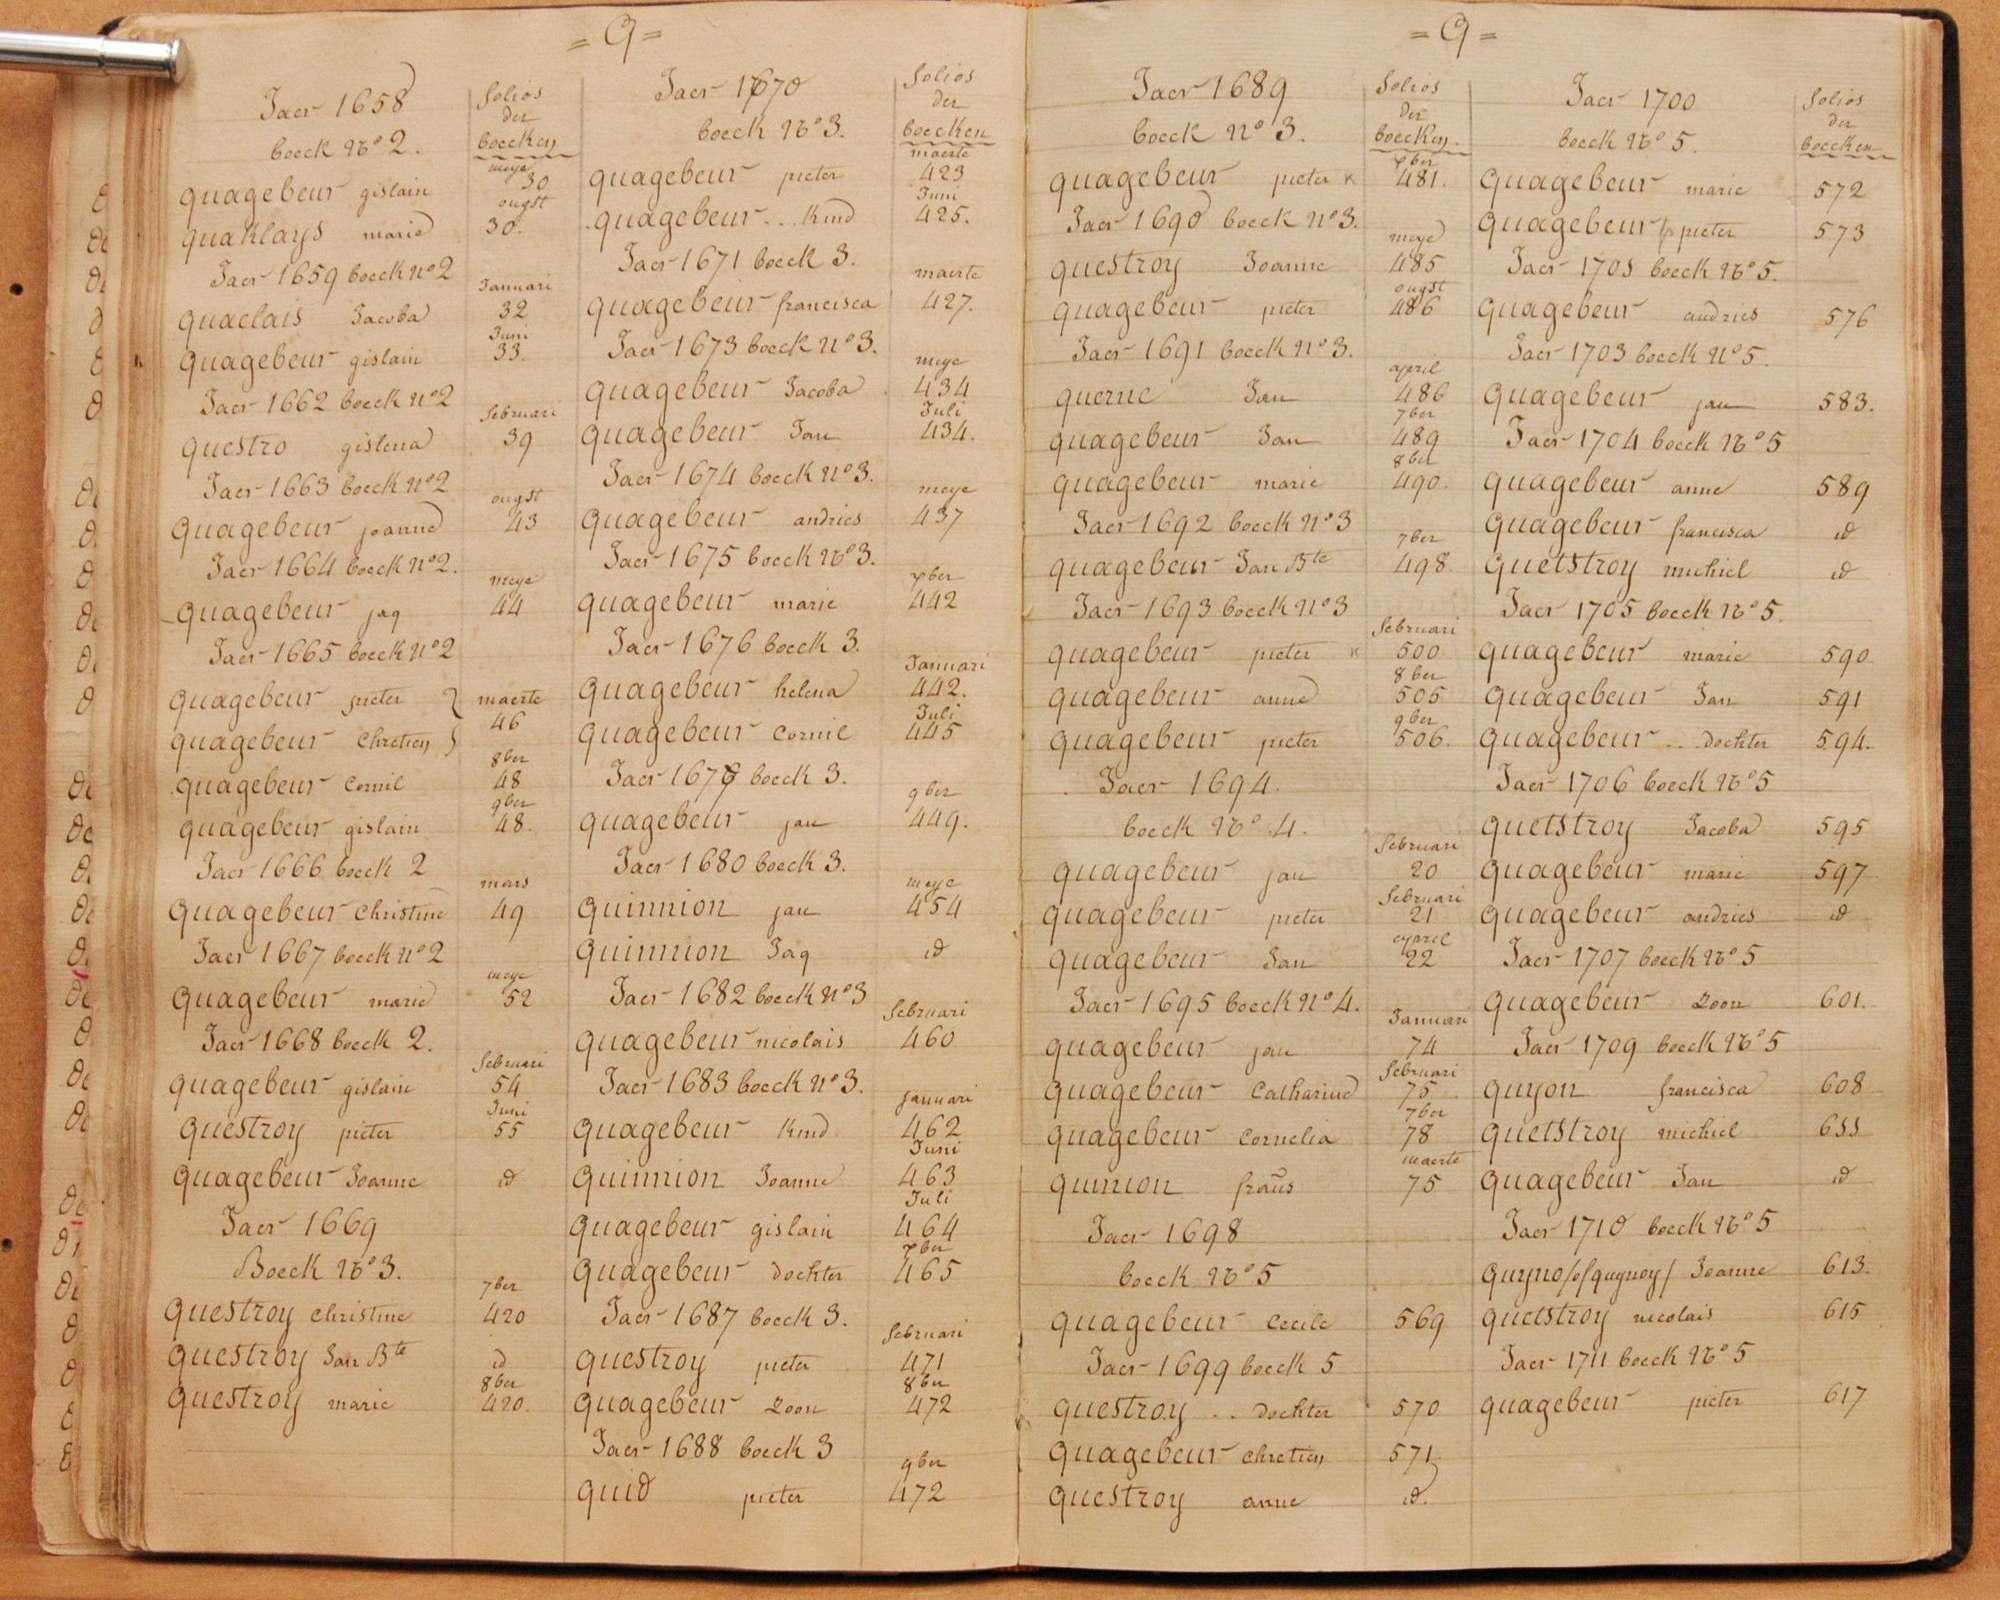 = Q =
Jaer 1658
boeck No 2.
folios
der
boecken
quagebeur gislain
meye
30
quaklays marie
ougst
30.
Jaer 1659 boeck no 2
quaclais Jacoba
Januari
32
quagebeur gislain
Juni
33.
Jaer 1662 boeck no 2
questro gislena
februari
39
Jaer 1663 boeck no 2
quagebeur joanne
ougst
43
Jaer 1664 boeck no 2.
quagebeur jaq
meye
44
Jaer 1665 boeck no 2
quagebeur pieter }
maerte
46
quagebeur Chretien }
quagebeur Cornil
8ber
48
quagebeur gislain
9ber
48.
Jaer 1666 boeck 2
quagebeur Christine
mars
49
Jaer 1667 boeck no 2
quagebeur marie
meye
52
Jaer 1668 boeck 2.
quagebeur gislain
februari
54
questroy pieter
Juni
55
quagebeur Joanne id
Jaer 1669
Boeck No 3.
questroy christine
7ber
420
questroy Jan Bte id
questroy marie
8ber
420.
Jaer 1670
boeck No 3.
folios
der
boecken
quagebeur pieter
maerte
423
quagebeur ... Kind
Juni
425.
Jaer 1671 boeck 3.
quagebeur francisca
maerte
427.
Jaer 1673 boeck no 3.
quagebeur Jacoba
meye
434
quagebeur Jan
Juli
434.
Jaer 1674 boeck no 3.
quagebeur andries
meye
437
Jaer 1675 boeck No 3.
quagebeur marie
xber
442
Jaer 1676 boeck 3.
quagebeur helena
Januari
442.
quagebeur Cornil
Juli
445
boeck 3.
quagebeur jan
9ber
449.
Jaer 1680 boeck 3.
quinnion jan
meye
454
quinnion Jaq id
Jaer 1682 boeck no 3
quagebeur nicolais
februari
460
Jaer 1683 boeck no 3.
quagebeur Kind
januari
462
quinnion Joanne
Juni
463
quagebeur gislain
Juli
464
quagebeur dochter
xber
465
Jaer 1687 boeck 3.
questroy pieter
februari
471
quagebeur Zoon
8ber
472
Jaer 1688 boeck 3
quid pieter
9ber
472
= Q =
Jaer 1689
boeck no 3.
folios
der
boecken.
quagebeur pieter x
xber
481.
Jaer 1690 boeck no 3.
questroy Joanne
meye
485
quagebeur pieter
ougst
486
Jaer 1691 boeck no 3.
querne Jan
april
486
quagebeur Jan
7ber
489
quagebeur marie
8ber
490.
Jaer 1692 boeck no 3
quagebeur Jan Bte
7ber
498
Jaer 1693 boeck no 3
quagebeur pieter x
februari
500
quagebeur anne
8ber
505
quagebeur pieter
9ber
506.
Jaer 1694.
boeck No 4.
quagebeur jan
februari
20
quagebeur pieter
februari
21
quagebeur Jan
april
22
Jaer 1695 boeck no 4.
quagebeur jan
Januari
74
quagebeur Catharine
februari
75
quagebeur Cornelia
7ber
78
quinion frans
maerte
75
Jaer 1698
boeck No 5
quagebeur Cecile 569
Jaer 1699 boeck 5
questroy .. dochter 570
quagebeur chretien 571
questroy anne id.
Jaer 1700
boeck No 5.
folios
der
boecken
quagebeur marie 572
quagebeur pieter 573
boeck No 5.
quagebeur andries 576
Jaer 1703 boeck no 5.
quagebeur jan 583.
Jaer 1704 boeck No 5
quagebeur anne 589
quagebeur francisca id
quetstroy michiel id
Jaer 1705 boeck No 5.
quagebeur marie 590
quagebeur Jan 591
quagebeur .. dochter 594.
Jaer 1706 boeck No 5
quetstroy Jacoba 595
quagebeur marie 597
quagebeur andries id
Jaer 1707 boeck No 5
quagebeur Zoon 601.
Jaer 1709 boeck No 5
quyon francisca 608
quetstroy michiel
quagebeur Jan id
Jaer 1710 boeck No 5
quyno /of quynoy/ Joanne 613.
quetstroy nicolais 615
Jaer 1711 boeck No 5
quagebeur pieter 617